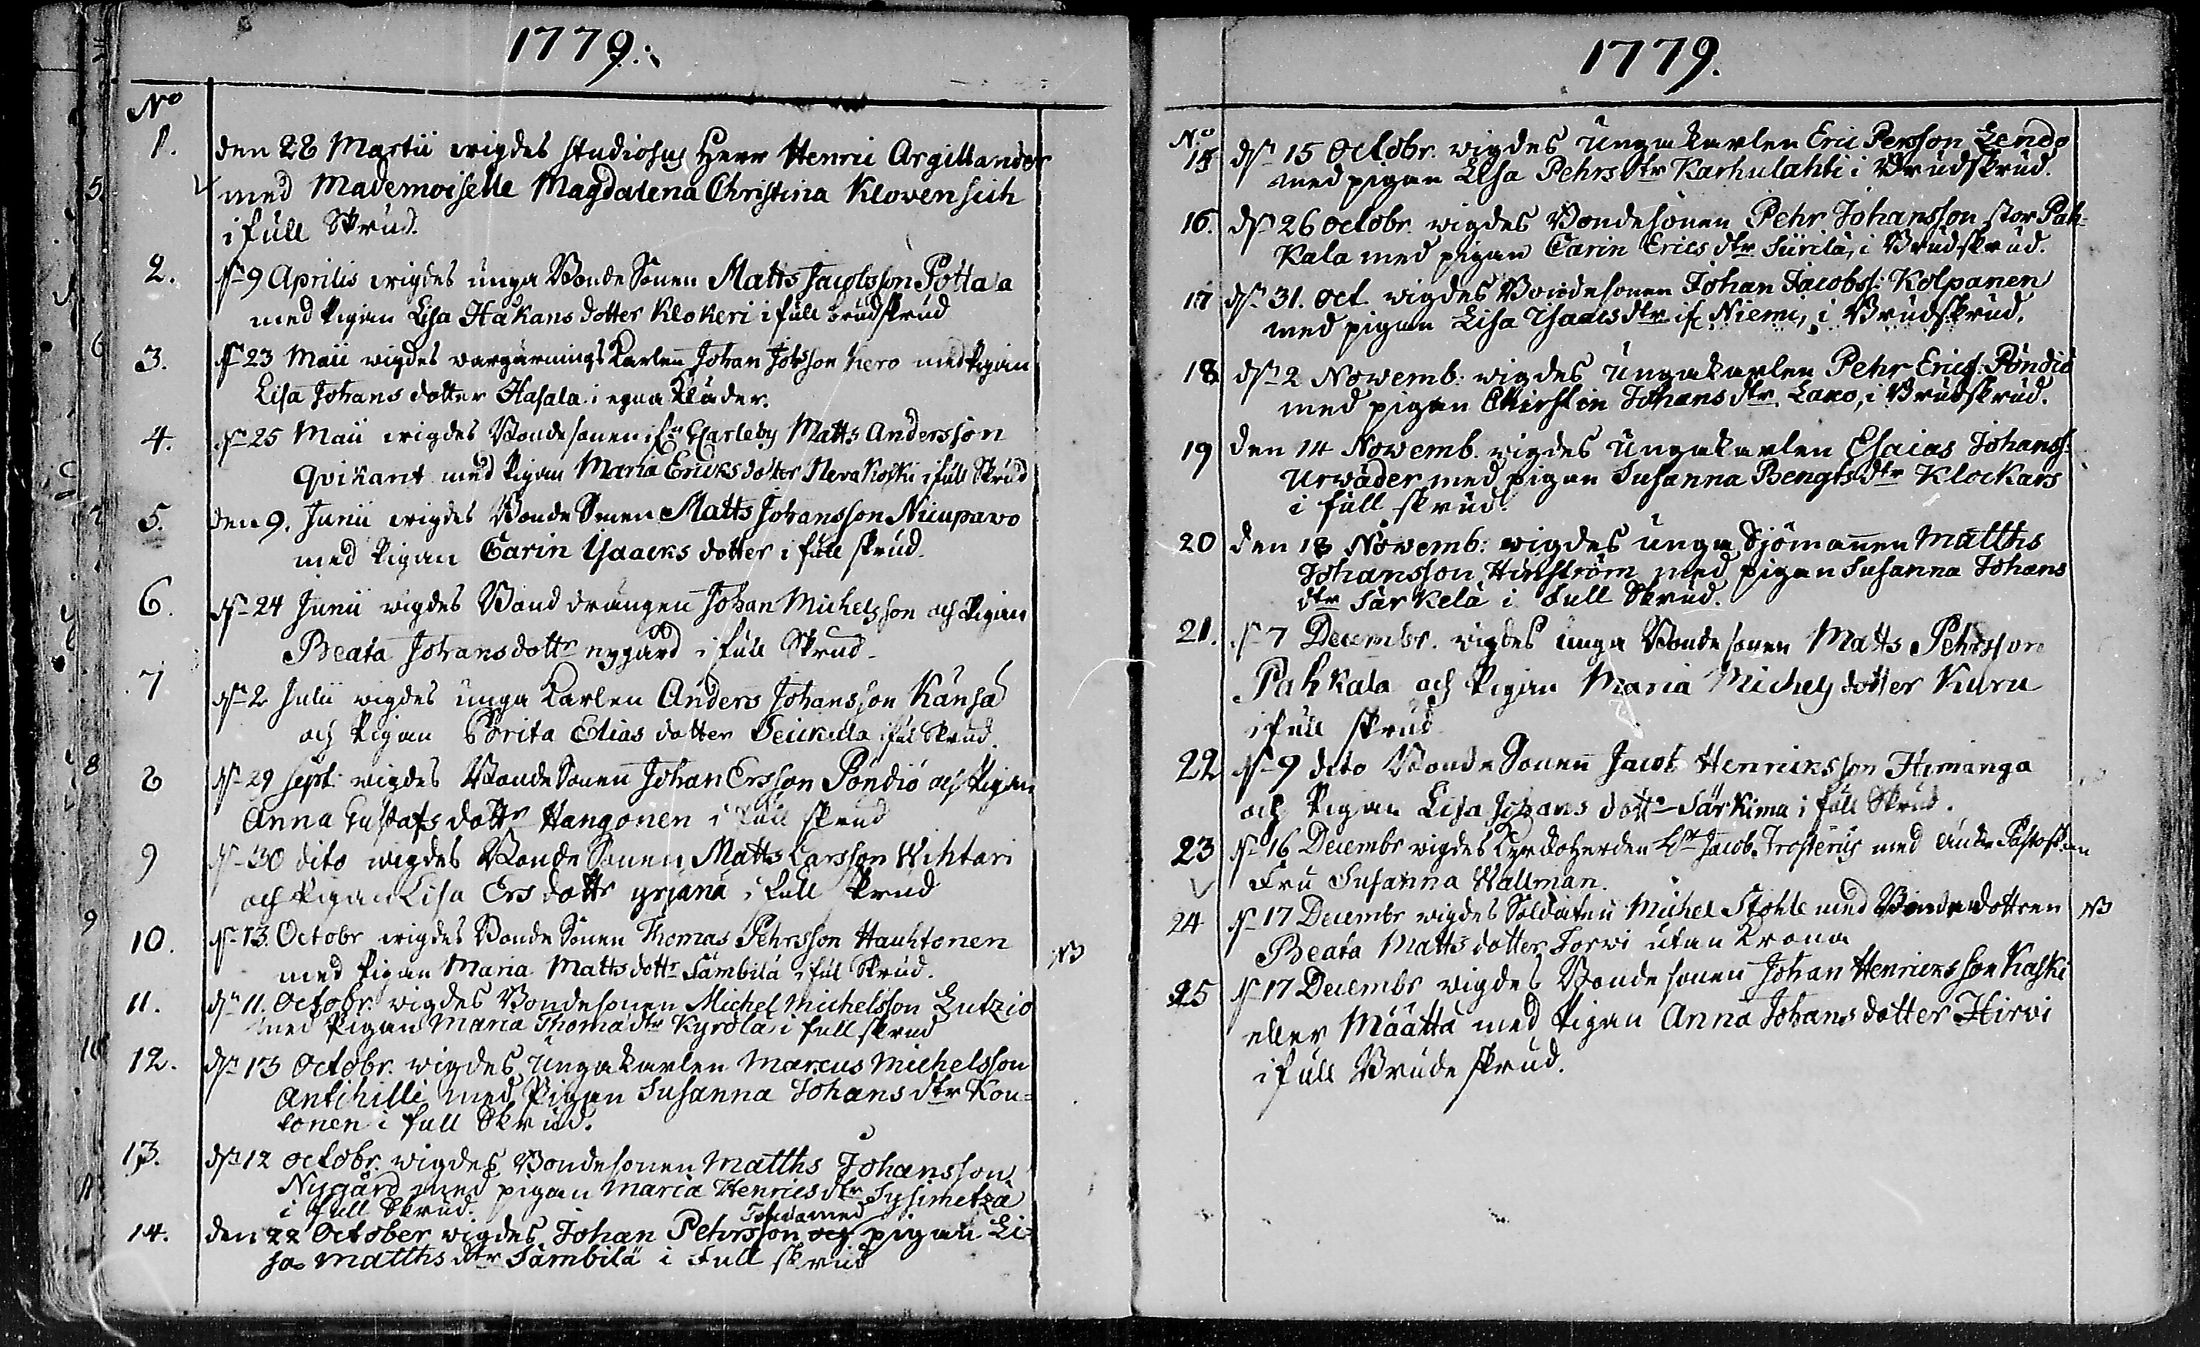 1779.
No
1. den 28 Martii wigdes Studiosus Herr Henric Argillander
med Mademoiselle Magdalena Christina Klovensich
i full Skrud.
2. dn 9 Aprilis wigdes unga Bonde Sonen Matts Jacobsson Pottala
med Pigan Lisa Håkans dotter Klokeri i full brudskrud
3. dn 23 Maii wigdes wargärnings Karlen Johan Johsson Kero med Pigan
Lisa Johans dotter Hasala i egna Kläder.
4. dn 25 Maii wigdes Bondesonen ifrn Carleby Matts Andersson
Qvikant med Pigan Maria Ericks dotter Neva Koski i full Skrud
5. den 9. Junii wigdes Bonde Sonen Matts Johansson Nicuparvo
med Pigan Carin Isaacks dotter i full skrud.
6. dn 24 Junii wigdes Bonddrängen Johan Michelsson och Pigan
Beata Johansdottr nygård i full Skrud.
7 dn 2 Julii wigdes unga Karlen Anders Johansson Känsä
och Pigan Brita Elias dotter Peickula i full Skrud.
8 dn 29 Sept: wigdes Bonde Sonen Johan Ersson Pöndiö och Pigan
Anna Gustafs dottr Hangonen i full skrud
9 dn 30 dito wigdes Bonde Sonen Matts Larsson Wihtari
och Pigan Lisa Ers dottr yrjänä i full skrud
10. dn 13. Octobr wigdes Bonde Sonen Thomas Pehrsson Hauhtonen NB
med Pigan Maria Matts dottr Sämbilä i full Skrud.
11. dn 11. Octobr. wigdes Bondesonen Michel Michelsson Lutzio
med Pigan Maria Thomædtr Kyrölä i full skrud
12. dn 13 Octobr. wigdes Ungakarlen Marcus Michelsson
Antihilli med Pigan Susanna Johans dtr Kou=
tonen i full Skrud.
13. dn 12 octobr. wigdes Bondesonen Matths Johansson
Nygård med pigan Maria Henricsdtr Sysimetzä
i full Skrud.
Toholamed
14. den 22 October wigdes Johan Pehrsson och pigan Li=
sa Matths dtr Sämbilä i full skrud
1779.
No
15 dn 15 Octobr. wigdes Ungakarlen Eric Persson Lendo
med pigan Lisa Pehrs dtr Karhulahti i Brudskrud.
16. dn 26 octobr. wigdes Bondesonen Pehr Johansson stor Pah-
kala med pigan Carin Erics dtr Siirilä, i Brudskrud.
17 dn 31. Oct. wigdes Bondesonen Johan Jacobss: Kolpanen
med pigan Lisa Isaacsdtr if Niemi, i Brudskrud.
18 dn 2 Nowemb: wigdes Ungakarlen Pehr Erics: Pöndiö
med pigan Christin Johans dtr. Lako, i Brudskrud.
19 den 14 Nowemb. wigdes Ungakarlen Esaias Johanss:
Urwäder med pigan Susanna Bengts dtr Klockars
i full skrud.
20 den 18 Nowemb: wigdes unga Sjömannen Matths
Johansson Hinström med pigan Susanna Johans
dtr Särkelä i full Skrud.
21. dn 7 Decembr. wigdes unga Bonde sonen Matts Pehrsson
Pahkala och Pigan Maria Michels dotter Kuru
i full skrud
22 dn 9 dito Bonde Sonen Jacob Henriksson Himanga
och Pigan Lisa Johans dottr Särkima i full Skrud.
23 dn 16 Decembr wigdes Kyrkoherden Hr Jacob Frosterus med Enke Pastorskan
Fru Susanna Wallman.
24 dn 17 Decembr wigdes Soldaten Michel Ståhle med Bondedottren NB
Beata Matts dotter Torvi utan Krona
25 dn 17 Decembr wigdes Bonde sonen Johan Henricksson Kaski
eller Määttä med Pigan Anna Johans dotter Hirvi
i full Brude skrud.